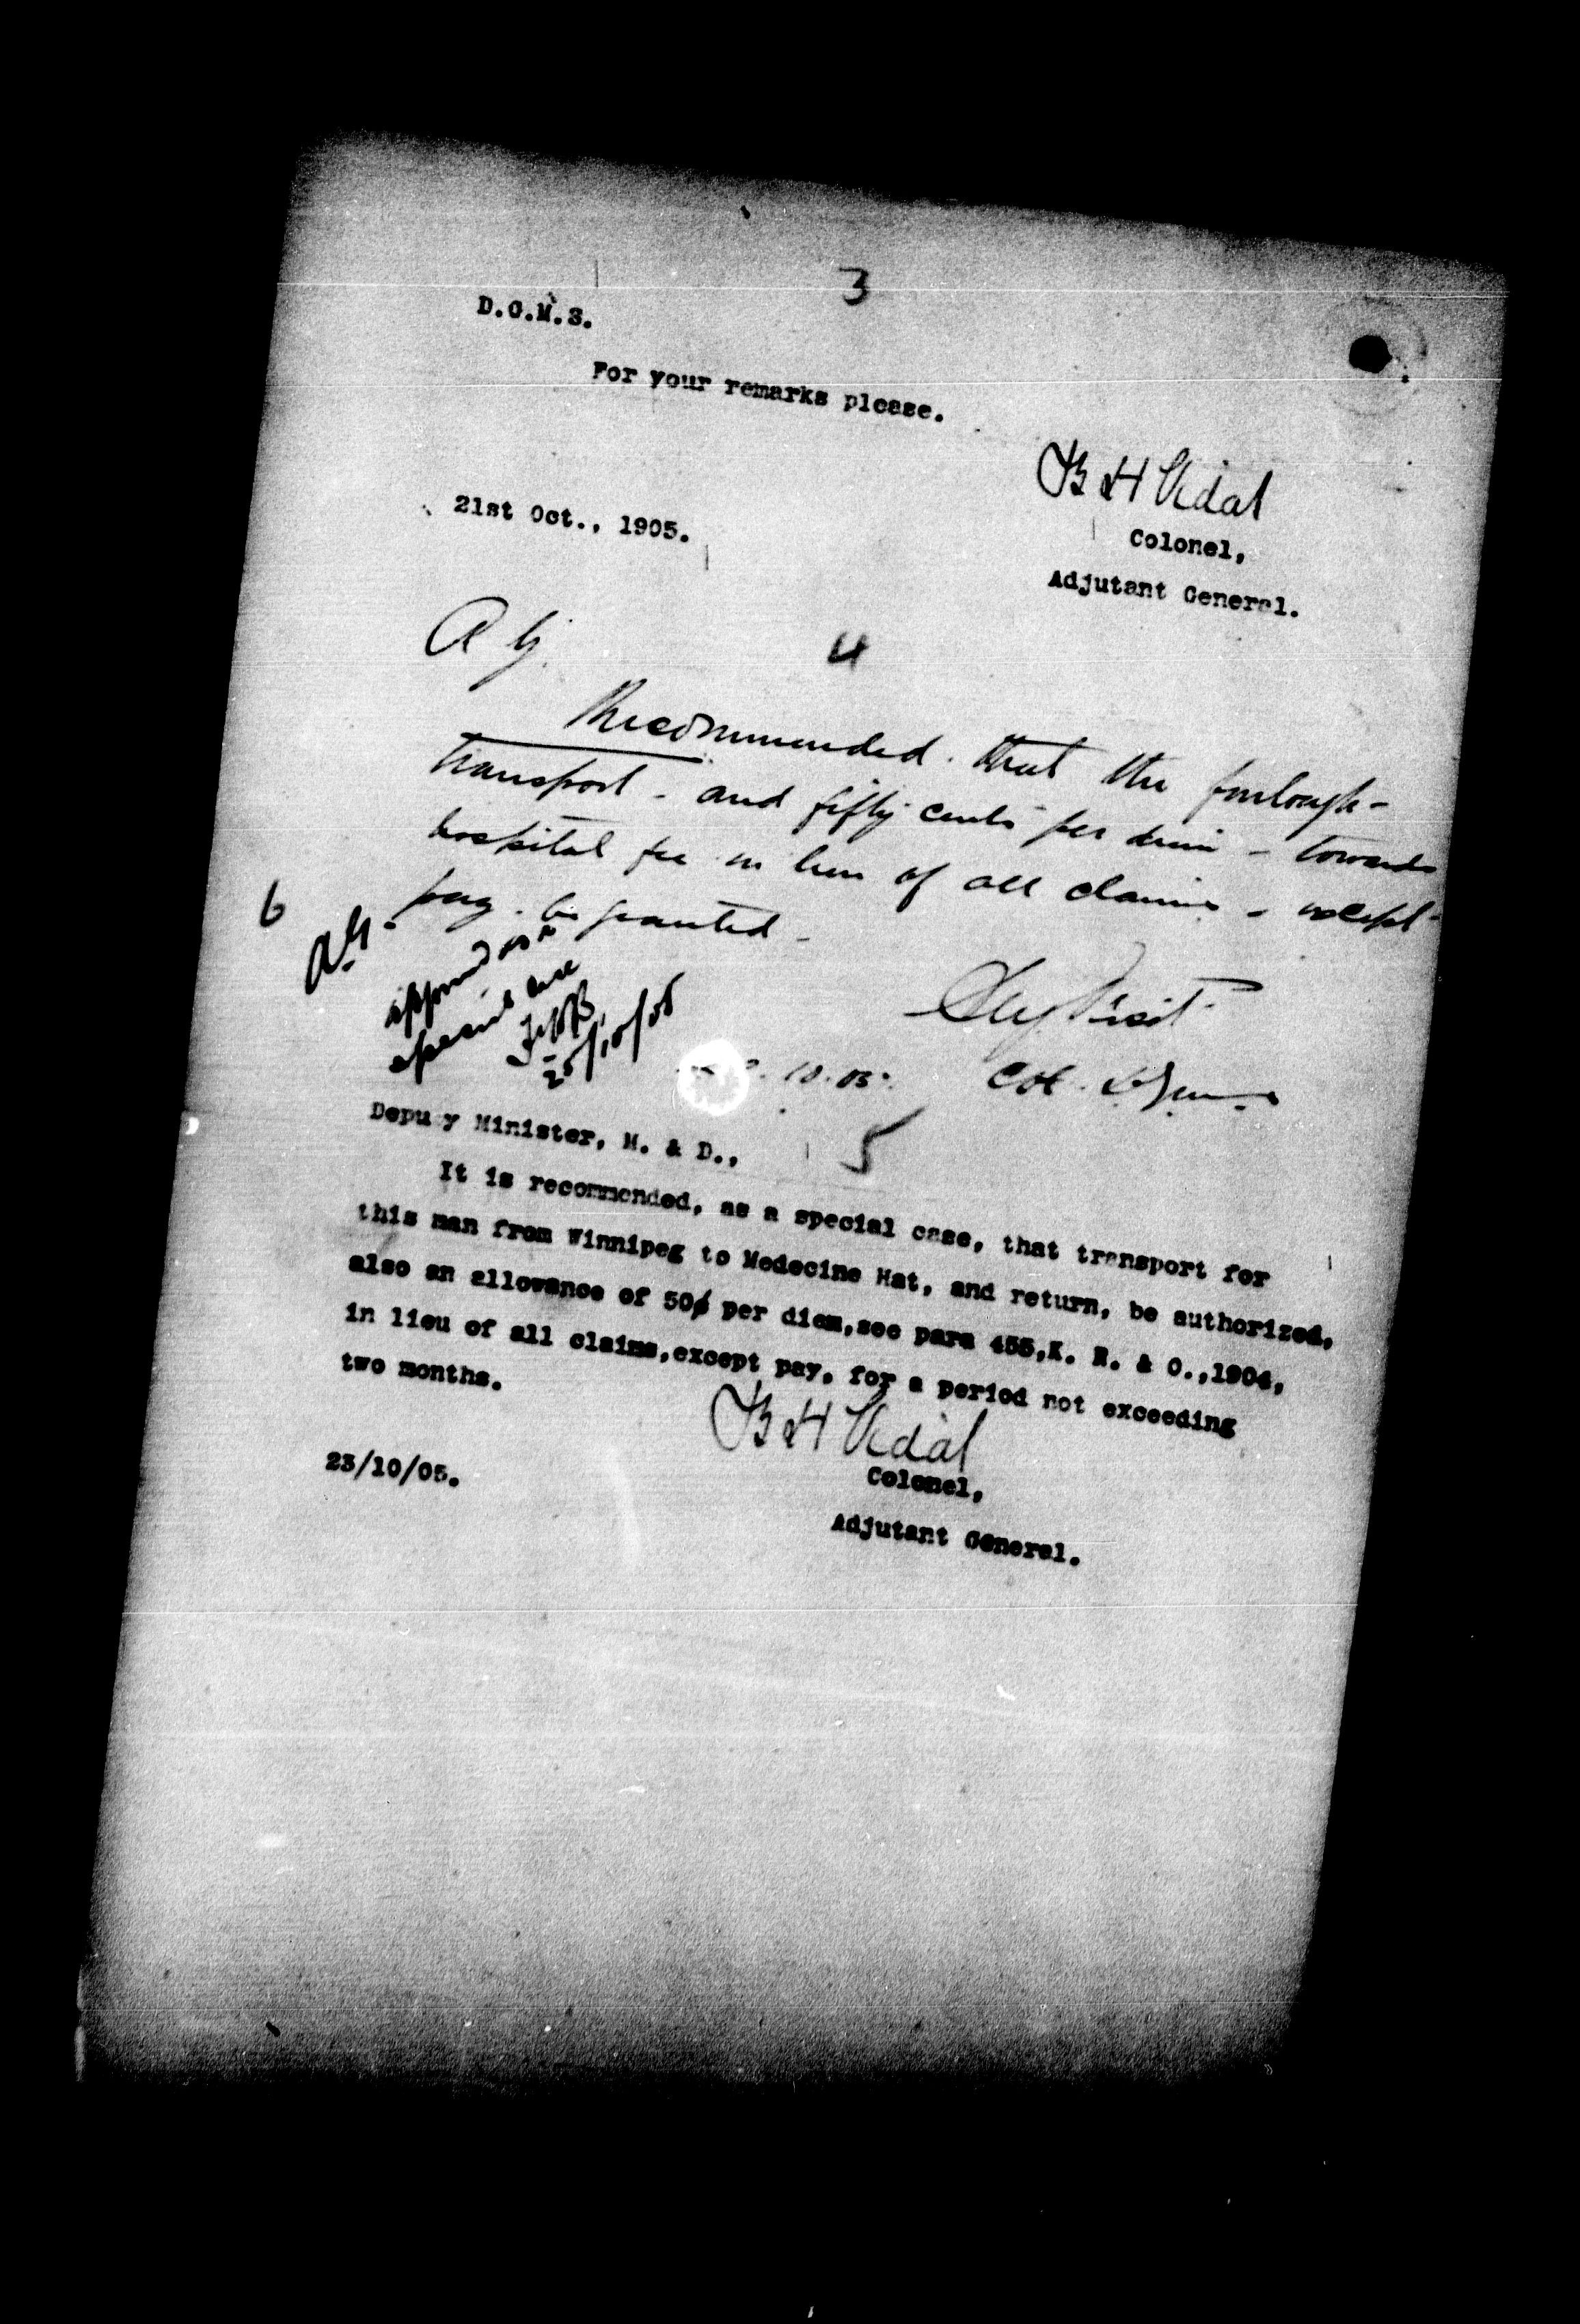 3
D.G.M.S.
For your remarks please.
B H Vidal
Colonel,
Adjutant General.
21st Oct., 1905.
A G.
4
Recommended. that the furlough-
transport - and fifty cents per diem - towards
hospital fee in lieu of all claims - except
pay. be granted -
6
AG.
approved as a
special case
25/10/05
10.05.
Col.
Deputy Minister, M. & D.,
5
It is recommended, as a special case, that transport for
this man from Winnipeg to Medecine Hat, and return, be authorized,
also an allowance of 50¢ per diem,see para 455,K. R. & O.,1904,
in lieu of all claims,except pay, for a period not exceeding
two months.
B H Vidal
Colonel,
Adjutant General.
23/10/05.